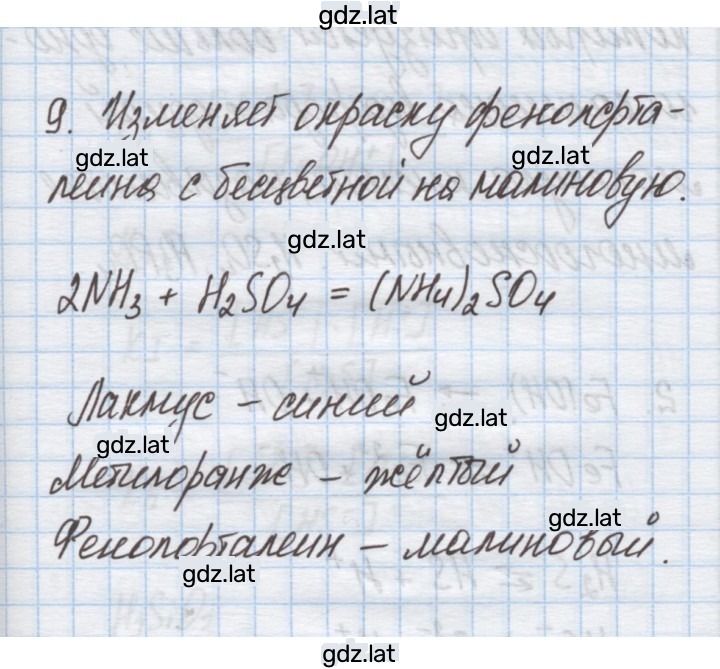 gdz.lat
9. Изменяет окраску фенолфта-
gdz.lat gdz.lat
леина с бесцветной на малиновую.
gdz.lat
2NH₃ + H₂SO₄ = (NH₄)₂SO₄
Лакмус – синий gdz.lat
gdz.lat
Метилоранж – жёлтый
gdz.lat
Фенолфталеин – малиновый.
gdz.lat
gdz.lat